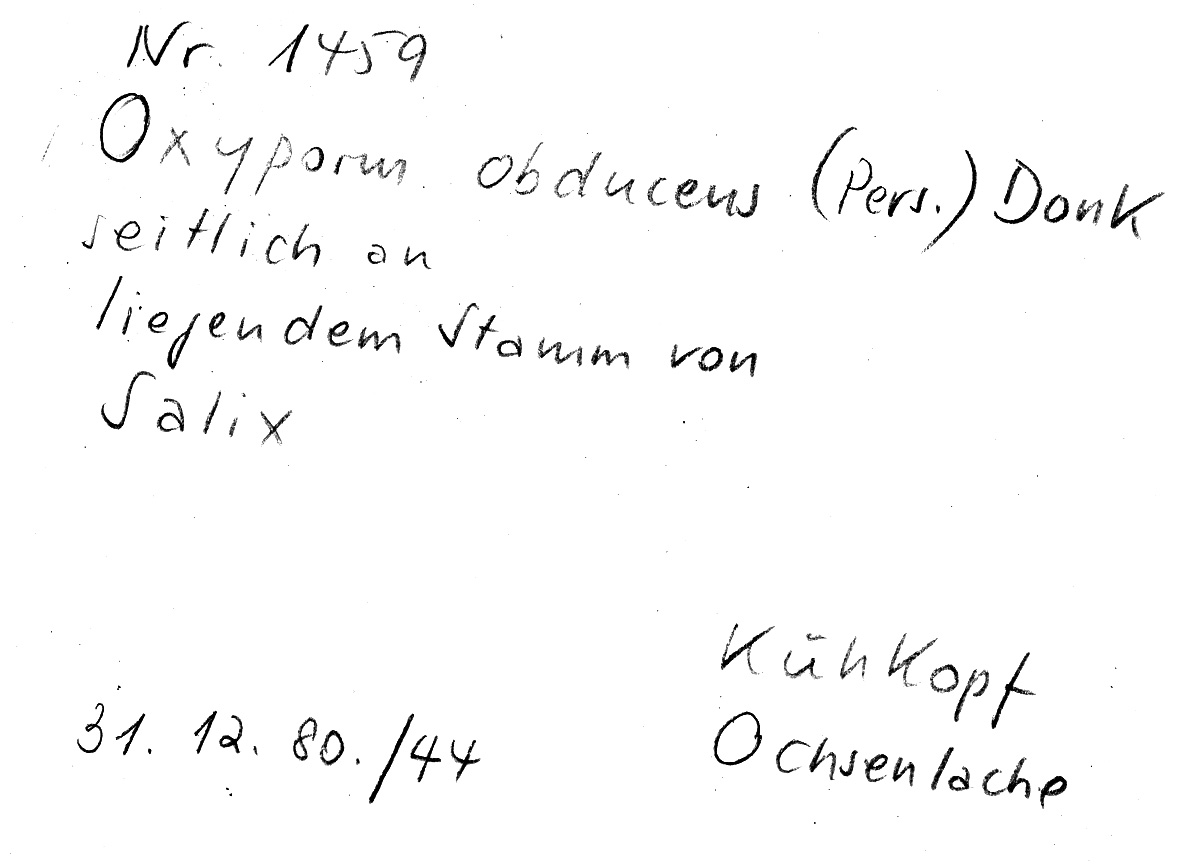 Nr. 1459
Oxyporus obducens (Pers.) Donk
seitlich an
liegendem Stamm von
Salix
Kühkopf
31. 12. 80./44
Ochsenlache